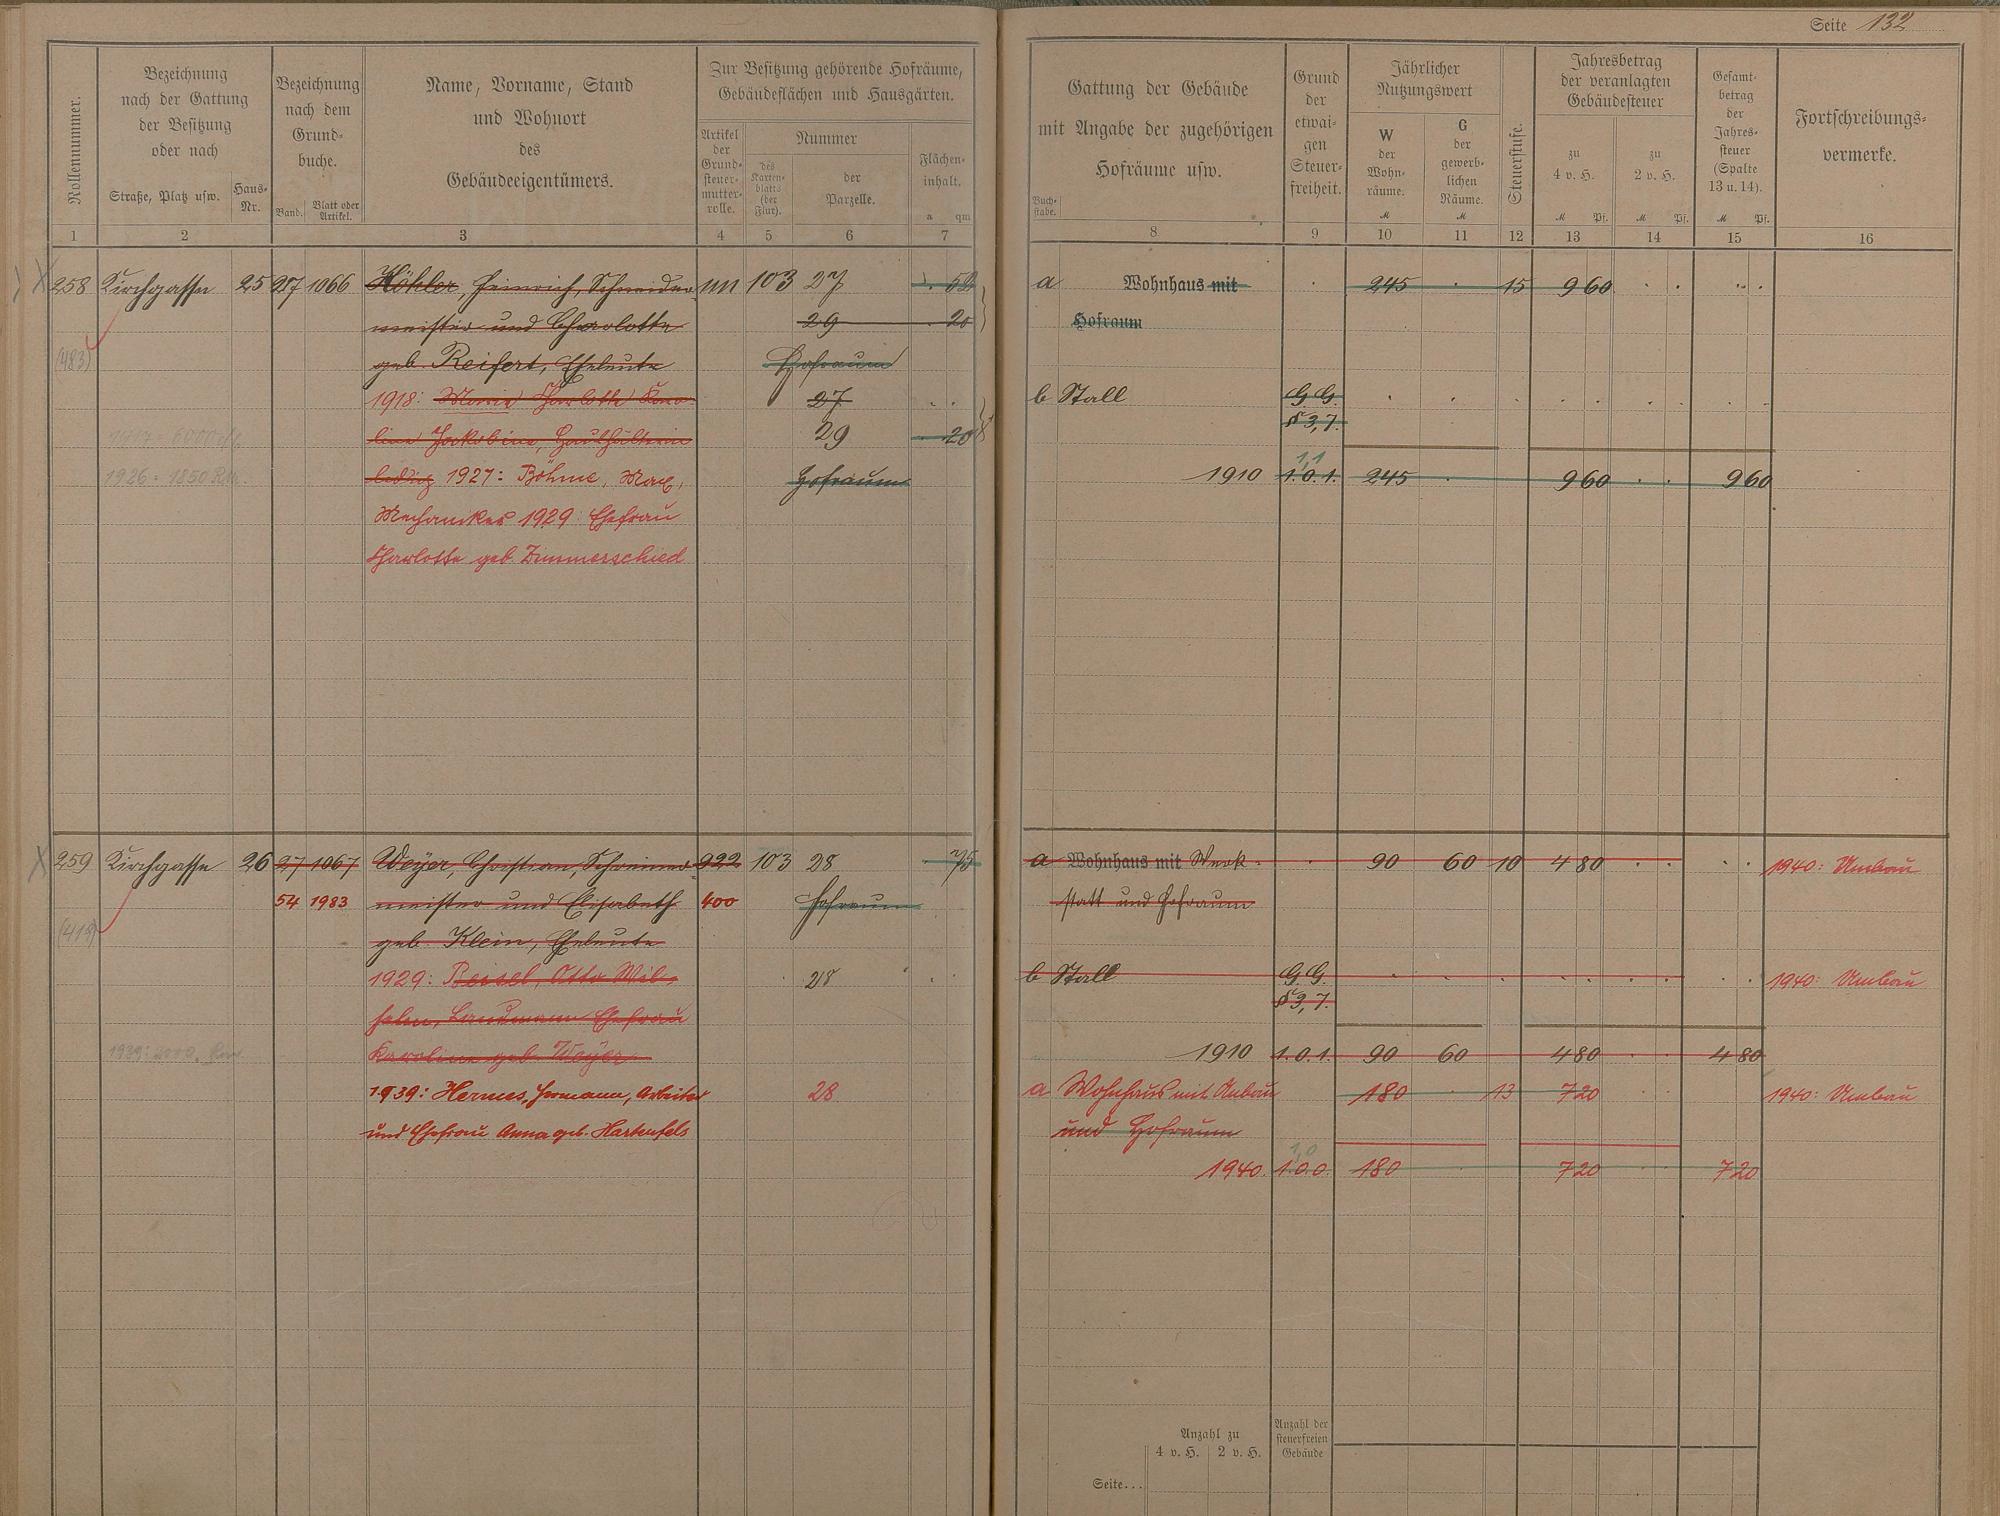 Seite 132
Rollennummer.
Bezeichnung
nach der Gattung
der Besitzung
oder nach
Straße, Platz usw.
Haus-
Nr.
Bezeichnung
nach dem
Grund-
buche.
Band.
Blatt oder
Artikel.
Name, Vorname, Stand
und Wohnort
des
Gebäudeeigentümers.
Zur Besitzung gehörende Hofräume,
Gebäudeflächen und Hausgärten.
Artikel
der
Grund-
steuer-
mutter-
rolle.
Nummer
des
Karten-
blatts
(der
Flur).
der
Parzelle.
Flächen-
inhalt.
a qm
Buch-
stabe.
Gattung der Gebäude
mit Angabe der zugehörigen
Hofräume usw.
Grund
der
etwai-
gen
Steuer-
freiheit.
Jährlicher
Nutzungswert
W
der
Wohn-
räume.
M
G
der
gewerb-
lichen
Räume.
M
Steuerstufe.
Jahresbetrag
der veranlagten
Gebäudesteuer
zu
4 v. H.
M Pf.
zu
2 v. H.
M Pf.
Gesamt-
betrag
der
Jahres-
steuer
(Spalte
13 u. 14).
M Pf.
Fortschreibungs-
vermerke.
1 2 3 4 5 6 7 8 9 10 11 12 13 14 15 16
258 Kirchgasse 25 27 1066 Köhler, Heinrich, Schneider- 1111 103 27 . 52 a Wohnhaus mit . 245 . 15 9 60 . . . .
meister und Charlotte 29 . 20 Hofraum
(483) geb. Reifert, Eheleute Hofraum
1918: Maria Charlotte Karo- 27 . . b Stall G.G.
§ 3,7.
line Jakobine, Haushälterin 29 . 20
1926: 1850 RM. ledig 1927: Böhme, Max, Hofraum 1910 1.0.1. 245 . 9 60 . . 9 60
1,1
Mechaniker 1929: Ehefrau
Charlotte geb. Zimmerschied
259 Kirchgasse 26 27 1067 Weyer, Christian, Schreiner- 922 103 28 . 75 a Wohnhaus mit Werk- . 90 60 10 4 80 . . . . 1940: Umbau
54 1983 meister und Elisabeth 400 Hofraum statt und Hofraum
(419) geb. Klein, Eheleute
1929: Beisel, Otto Wil- 28 b Stall G.G. 1940: Umbau
§ 3,7.
helm, Landmann Ehefrau
Karoline geb. Weyer 1910 1.0.1. 90 60 4 80 . . 4 80
1939: Hermes, Hermann, Arbeiter 28 a Wohnhaus mit Anbau 180 . 13 7 20 1940: Umbau
und Ehefrau Anna geb. Hartenfels und Hofraum
1,0
1940. 1.0.0. 180 . 7 20 . . 7 20
Anzahl zu
4 v. H. 2 v. H.
Anzahl der
steuerfreien
Gebäude
Seite...